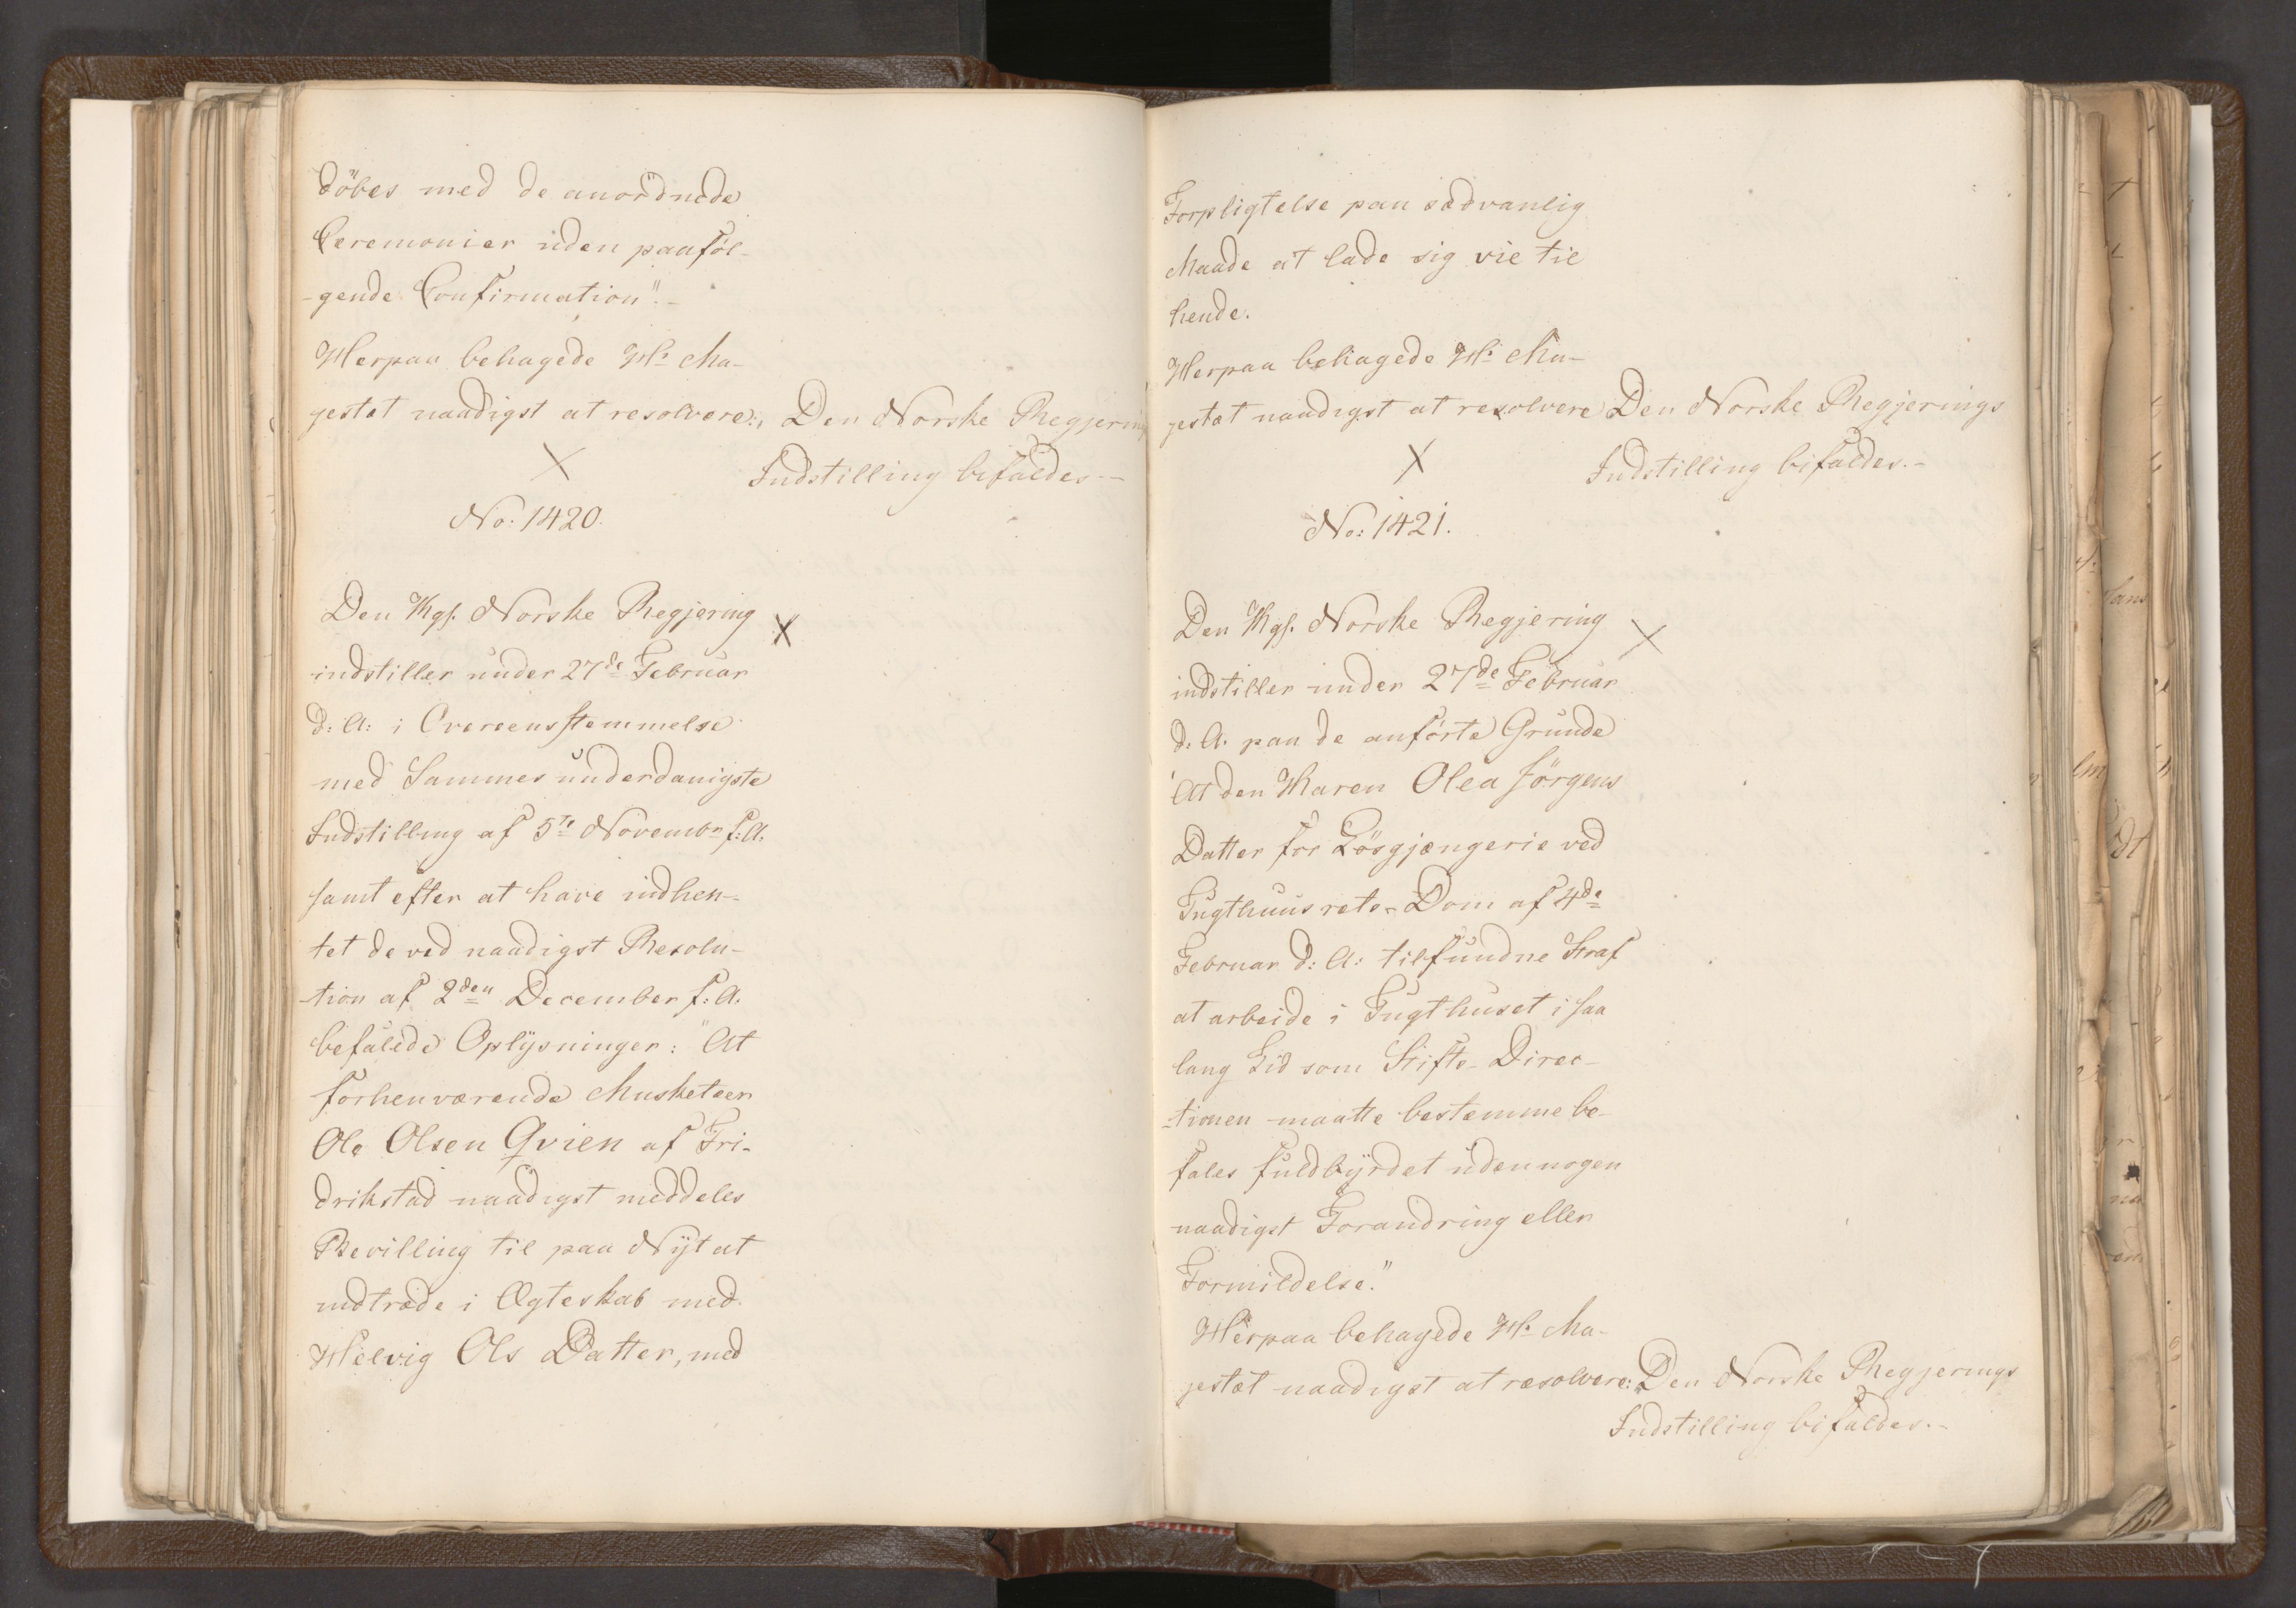 döbes med de anordnede
Ceremonier uden paaföl-
-gende Confirmation".-
Herpaa behagede H: Ma-
jestæt naadigst at resolvere:, Den Norske Regjering
Indstilling bifaldes.-
X
No: 1420.
Den Kgl. Norske Regjering X
indstiller under 27de Februar
d: A: i Overeensstemmelse
med Sammes underdanigste
Indstilling af 5te Novembr f: A.
samt efter at have indhen-
tet de ved naadigst Resolu-
tion af 2den December f: A.
befalede Oplÿsninger: "At
forhenværende Musketeer
Ole Olsen Qvien af Fri-
drikstad naadigst meddeles
Bevilling til paa Nÿt at
indtræde i Ægteskab med
Helvig Ols Datter, med
Forpligtelse paa sædvanlig
Maade at lade sig vie til
hende.
Herpaa behagede H: Ma-
jestæt naadigst at resolvere Den Norske Regjerings
Indstilling bifaldes.-
X
No: 1421.
Den Kgl. Norske Regjering X
indstiller under 27de Februar
d: A. paa de anförte Grunde
"At den Karen Olea Jörgens
Datter for Lösgjængerie ved
Tugthuusrets-Dom af 4de
Februar d: A: tilfundne Straf
at arbeide i Tugthuset i saa
lang Tid som Stifts-Direc-
-tionen maatte bestemme be-
fales fuldbÿrdet uden nogen
naadigst Forandring eller
Formildelse."
Herpaa behagede H: Ma-
jestæt naadigst at resolvere: Den Norske Regjerings
Indstilling bifaldes.-